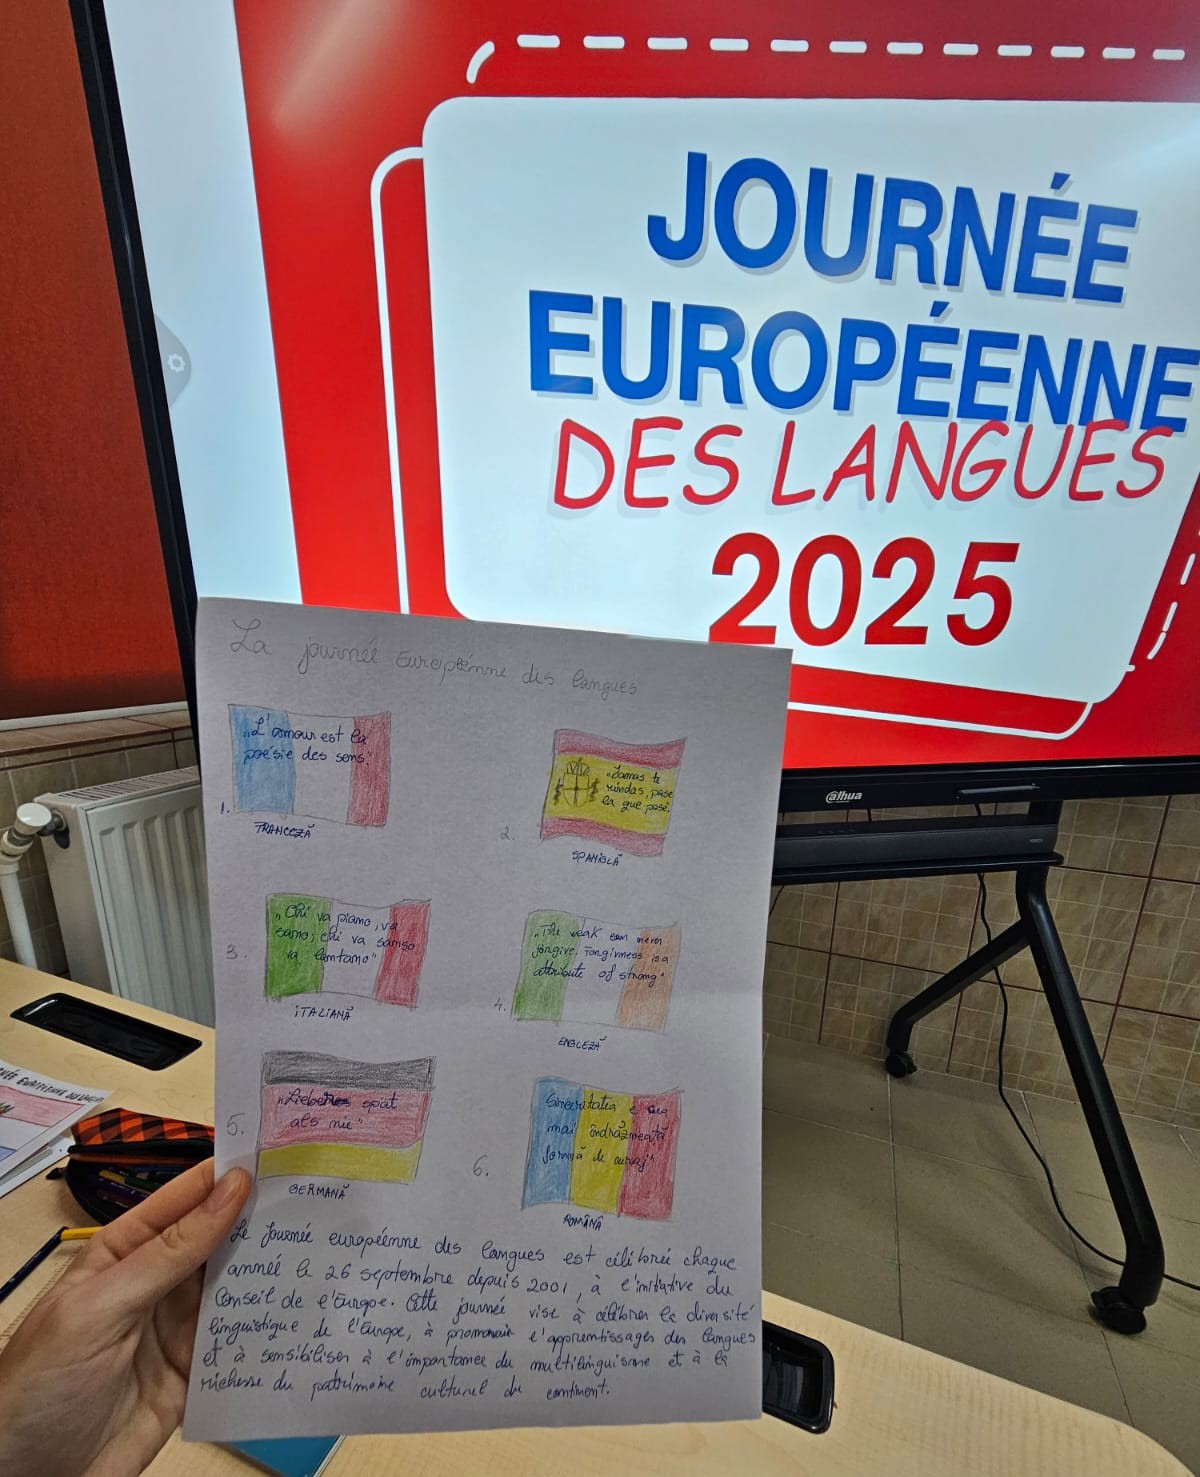 JOURNÉE
EUROPÉENNE
DES LANGUES
2025
alhua
La journée Européenne des langues
1.
„L'amour est la
poésie des sens."
FRANCEZĂ
2.
„Jamas te
rindas, pase
lo que pase.
SPANIOLĂ
3.
„Chi va piano, va
sano; chi va sano
va lontano"
ITALIANĂ
4.
„The weak can never
forgive. Forgivness is a
attribute of strong"
ENGLEZĂ
5.
„Lieber spät
als nie"
GERMANĂ
6.
Sinceritatea e cea
mai îndrăzneață
formă de curaj"
ROMÂNĂ
Le Journée européenne des langues est célébrée chaque
année le 26 septembre depuis 2001, à l'initiative du
Conseil de l'Europe. Cette journée vise à célébrer la diversité
linguistique de l'Europe, à promouvoir l'apprentissages des langues
et à sensibiliser à l'importance du multilinguisme et à la
richesse du patrimoine culturel du continent.